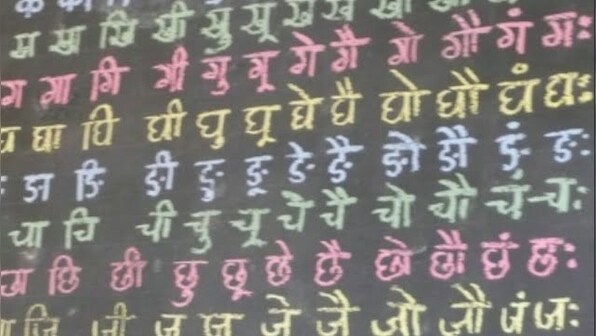 ख खा खि खी खु खू खे खै खो खौ
ग गा गि गी गु गू गे गै गो गौ गं गः
घ घा घि घी घु घू घे घै घो घौ घं घः
ङा ङि ङी ङु ङू ङे ङै ङो ङौ ङं ङः
चा चि ची चु चू चे चै चो चौ चं चः
छा छि छी छु छू छे छै छो छौ छं छः
जि जी जु जू जे जै जो जौ जं जः